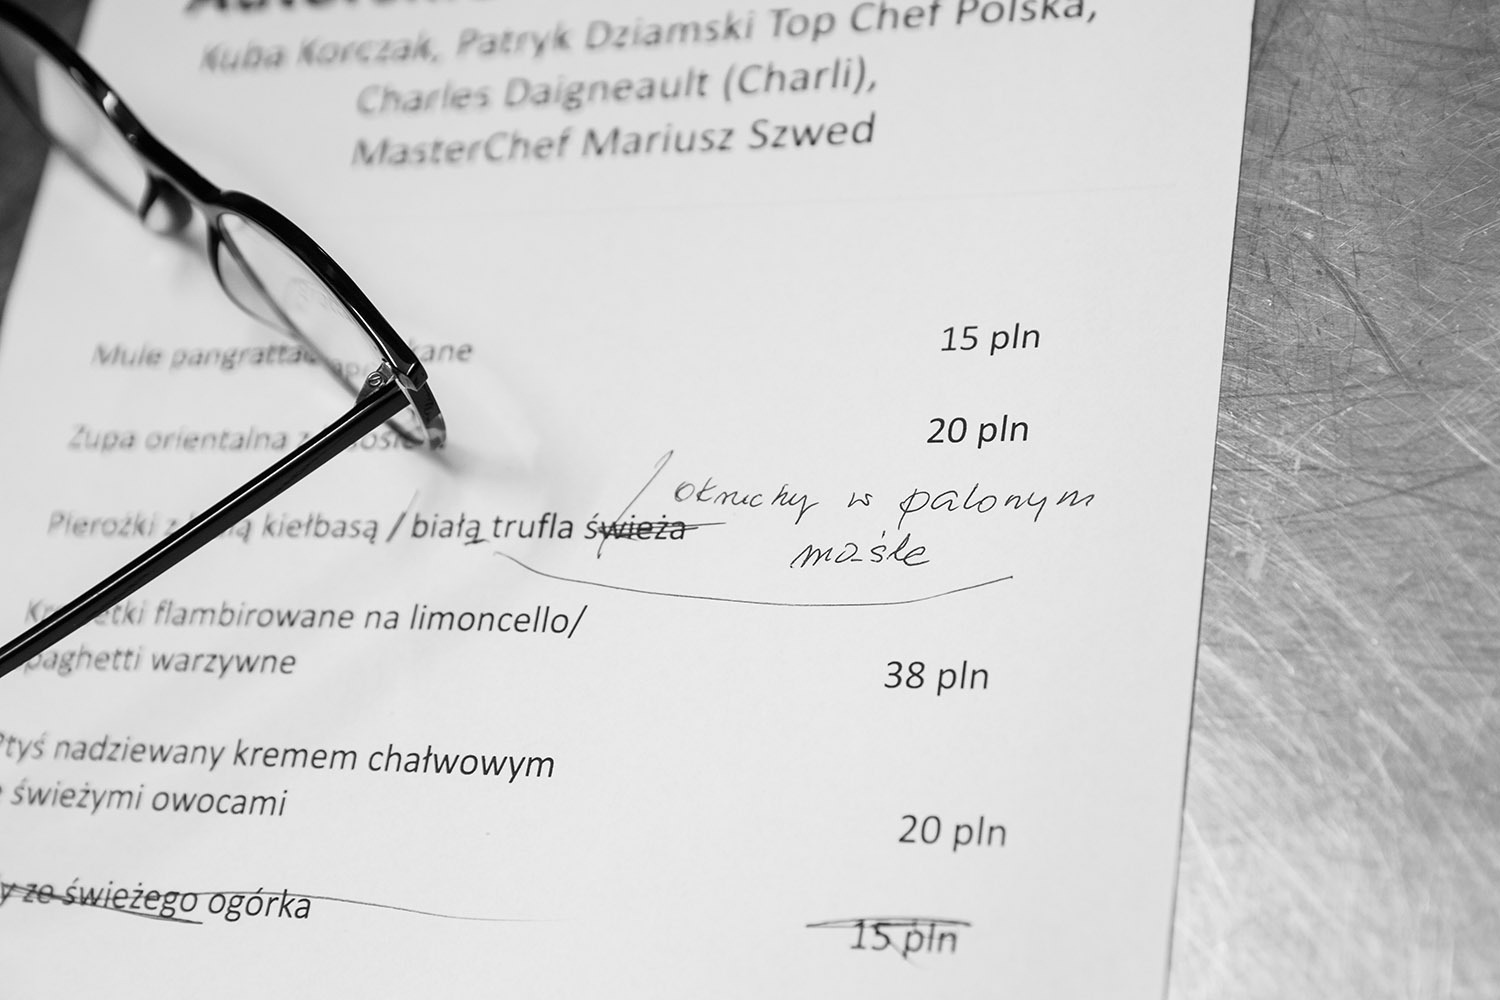 Kuba Korczak, Patryk Dziamski Top Chef Polska,
Charles Daigneault (Charli),
MasterChef Mariusz Szwed
Mule pangratta kane 15 pln
Zupa orientalna z 20 pln
okruchy w palonym
Pierożki z kiełbasą / białą trufla świeża
maśle
flambirowane na limoncello/
paghetti warzywne 38 pln
Ptyś nadziewany kremem chałwowym
świeżymi owocami 20 pln
y ze świeżego ogórka 15 pln